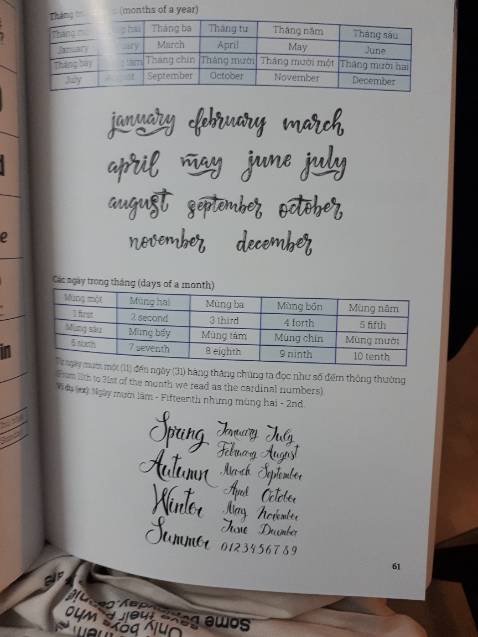 (months of a year)
Tháng ba Tháng tư Tháng năm Tháng sáu
January March April May June
Tháng bảy Tháng chín Tháng mười Tháng mười một Tháng mười hai
July August September October November December
january february march
april may june july
august september october
november december
Các ngày trong tháng (days of a month)
Mùng một Mùng hai Mùng ba Mùng bốn Mùng năm
1 first 2 second 3 third 4 forth 5 fifth
Mùng sáu Mùng bảy Mùng tám Mùng chín Mùng mười
6 sixth 7 seventh 8 eighth 9 ninth 10 tenth
Từ ngày mười một (11) đến ngày (31) hàng tháng chúng ta đọc như số đếm thông thường
(From 11th to 31st of the month we read as the cardinal numbers).
Ví dụ (ex): Ngày mười lăm - Fifteenth nhưng mùng hai - 2nd.
Spring January July
February August
Autumn March September
April October
Winter May November
June December
Summer 0123456789
61
Some
boys who
Only
their